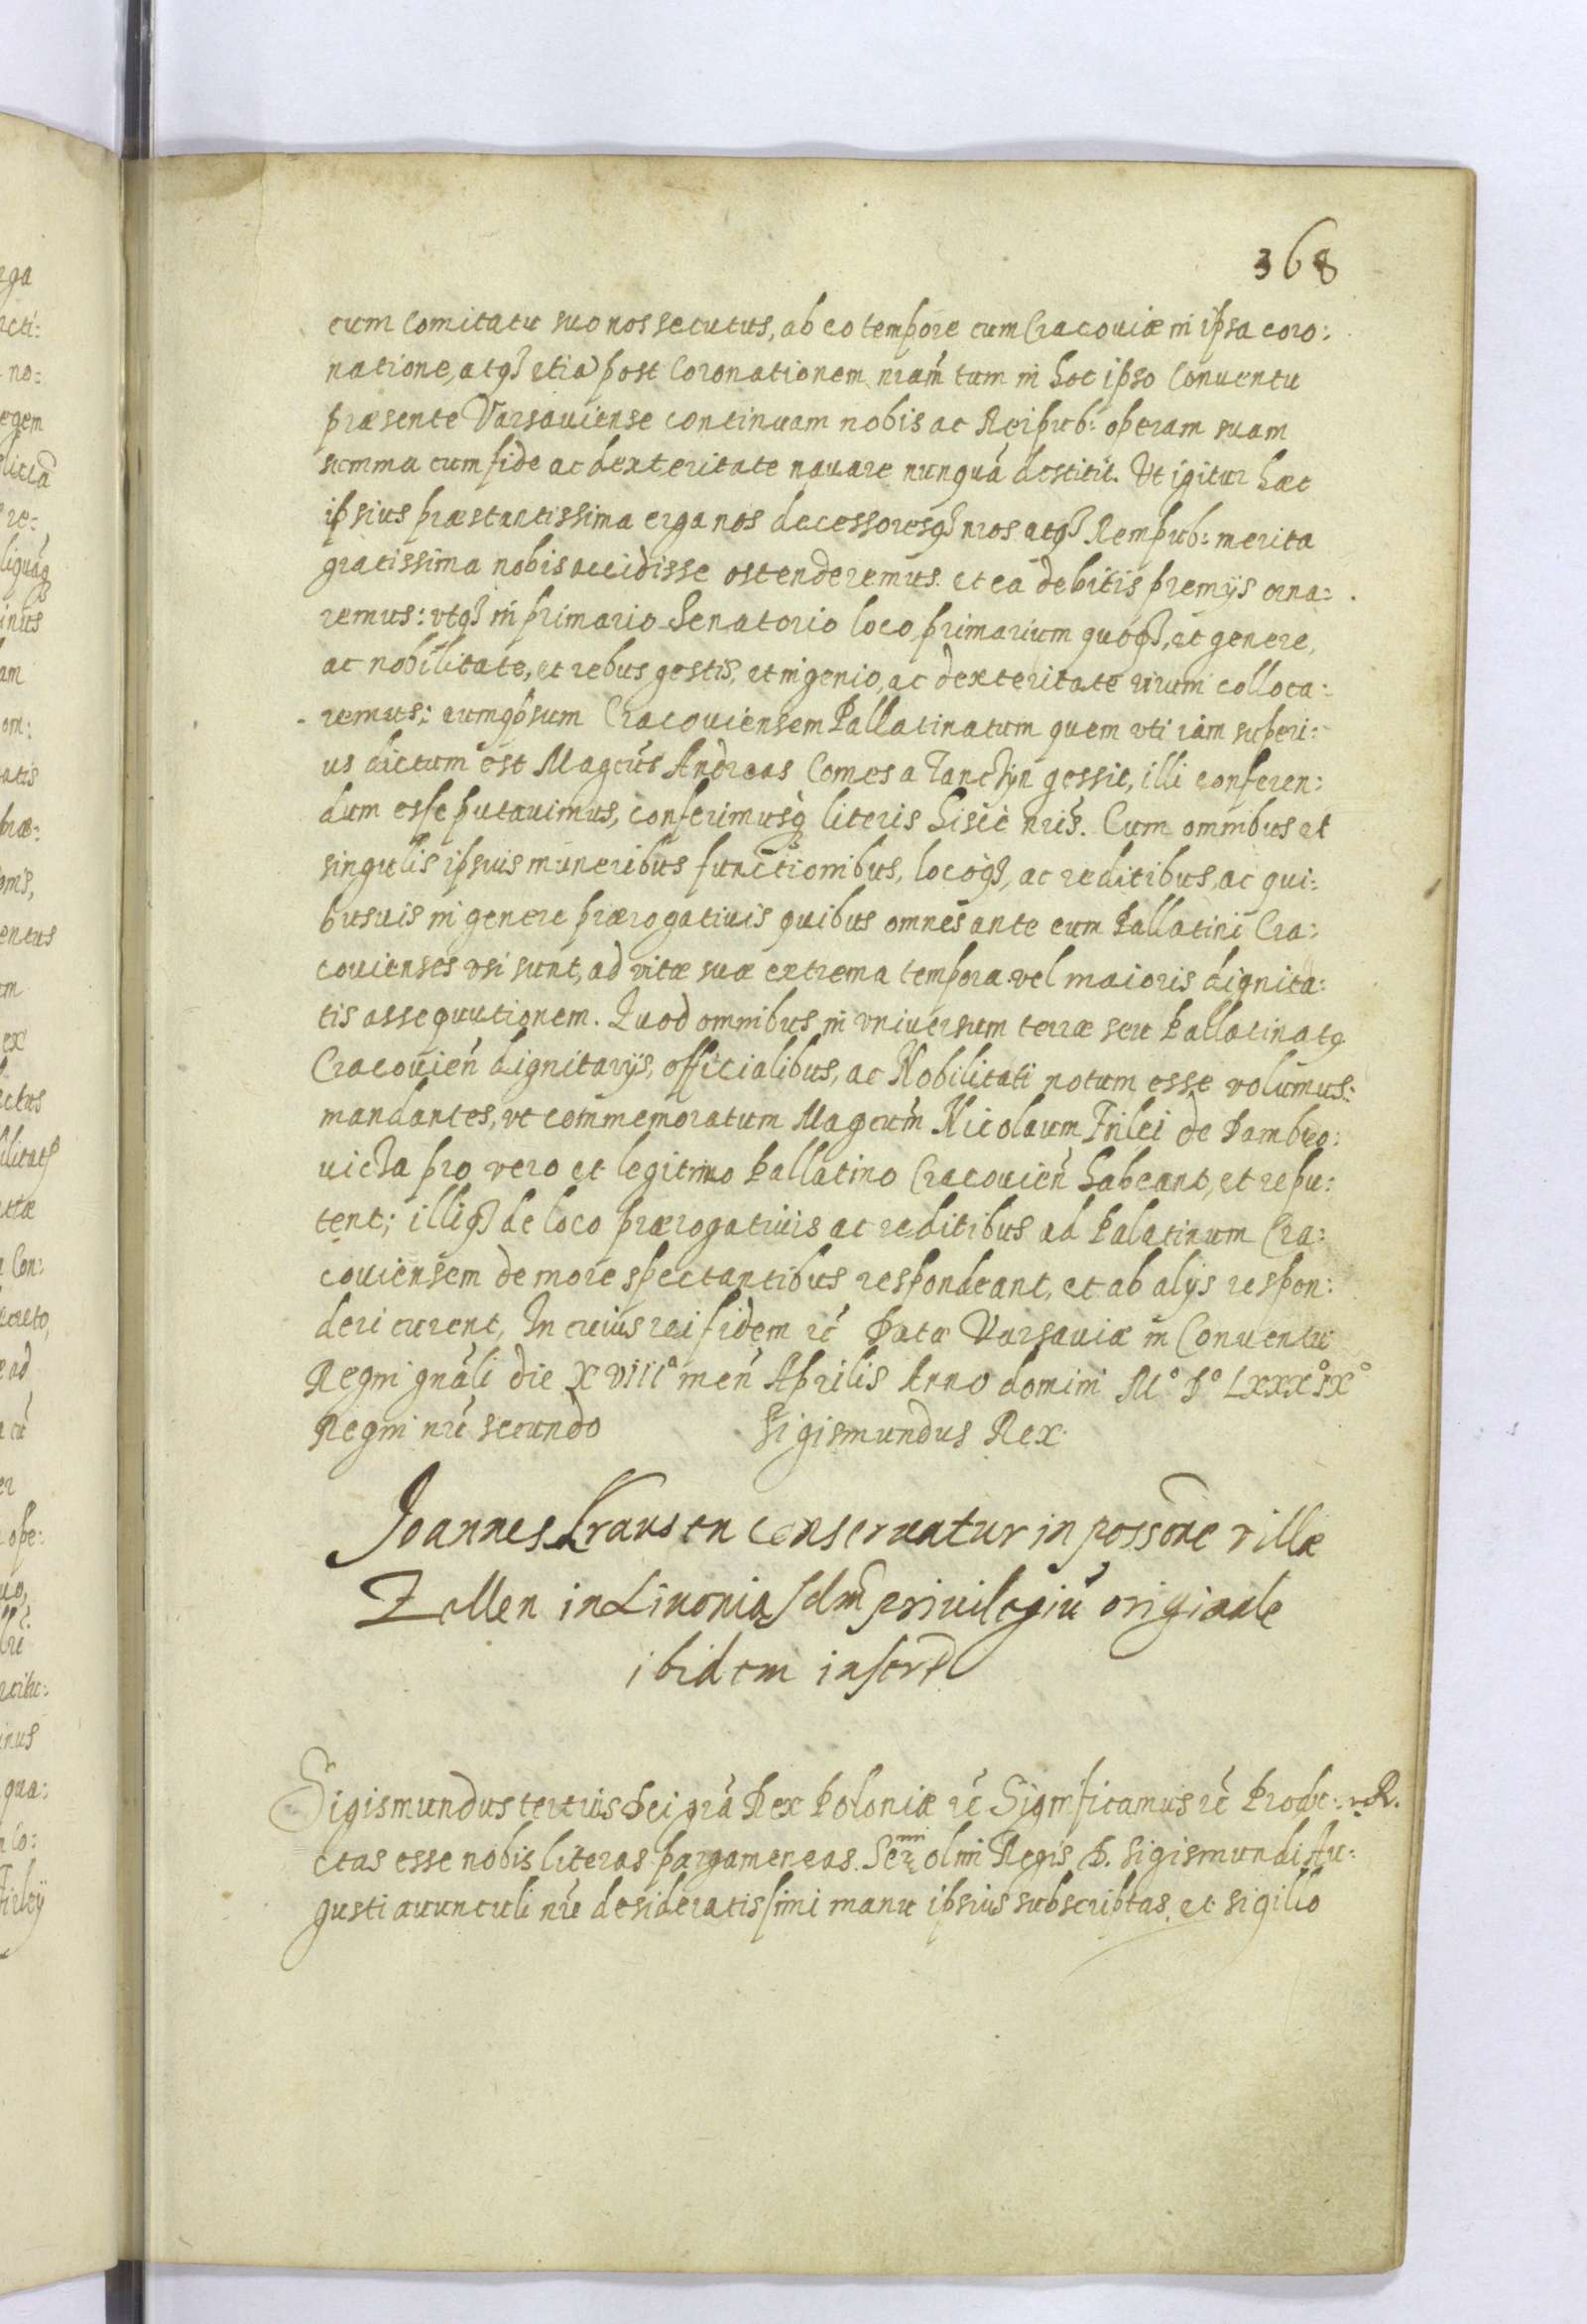 368
cum Comitatu suo nos secutus, ab eo tempore cum Cracoviæ in ipsa coro:
natione, atq3 etiā post Coronationem nram̃ tum in hoc ipso Conventu
præsente Varsauiense continuam nobis ac Reipub: operam suam
summa cum fide ac dexteritate nauare nunquā destitit. Vt igitur hæc
ipsius præstantissima erga nos decessoresq3 nros atq3 Rempub: merita
gratissima nobis accidisse ostenderemus. et ea debitis premijs orna:
remus: vtq3 in primario Senatorio loco, primarium quoq3, et genere,
ac nobilitate, et rebus gestis, et ingenio, ac dexteritate virum colloca:
remus; eumq3 Cracouiensem Pallatinatum quem vti iam superi:
us dictum est Magcus̃ Andreas Comes a Tanchyn gessit, illi conferen:
dum esse putauimus, conferimusq3 literis hisce nris̃. Cum omnibus et
singulis ipsius muneribus functionibus, locoq3, ac reditibus, ac qui:
busuis in genere prærogatiuis quibus omnes ante eum Pallatini Cra:
couienses vsi sunt, ad vitæ suæ extrema tempora vel maioris dignita:
tis assequutionem. Quod omnibus in vniuersum terræ seu Pallatinatq
Cracouień dignitarijs, officialibus, ac Nobilitati notum esse volumus:
mandantes, vt commemoratum Magcum̃ Nicolaum Firlei de Dambro:
uicza pro vero et legitimo Pallatino Cracouień habeant, et repu:
tent; illiq3 de loco prærogatiuis ac reditibus ad Palatinum Cra:
couiensem de more spectantibus respondeant, et ab alijs respon:
deri curent, In cuius rei fidem rč Datæ Varsauiæ in Conuentu
Regni gnāli die XVIIIª meń Aprilis Anno domini M° D° LXXX°IX°
Regni nrĩ secundo Sigismundus Rex
Joannes Krausen conservatur in possõne villæ
Zellen in Livonia s̃dm privilegiũ originale
ibidem insert
Sigismundus tertius Dei grã Rex Poloniæ rč Significamus rč Produ: R.
ctas esse nobis literas pargameneas. Ser olim Regis D. Sigismundi Au:
gusti auunculi nrĩ desideratissimi manu ipsius subscriptas et sigillo